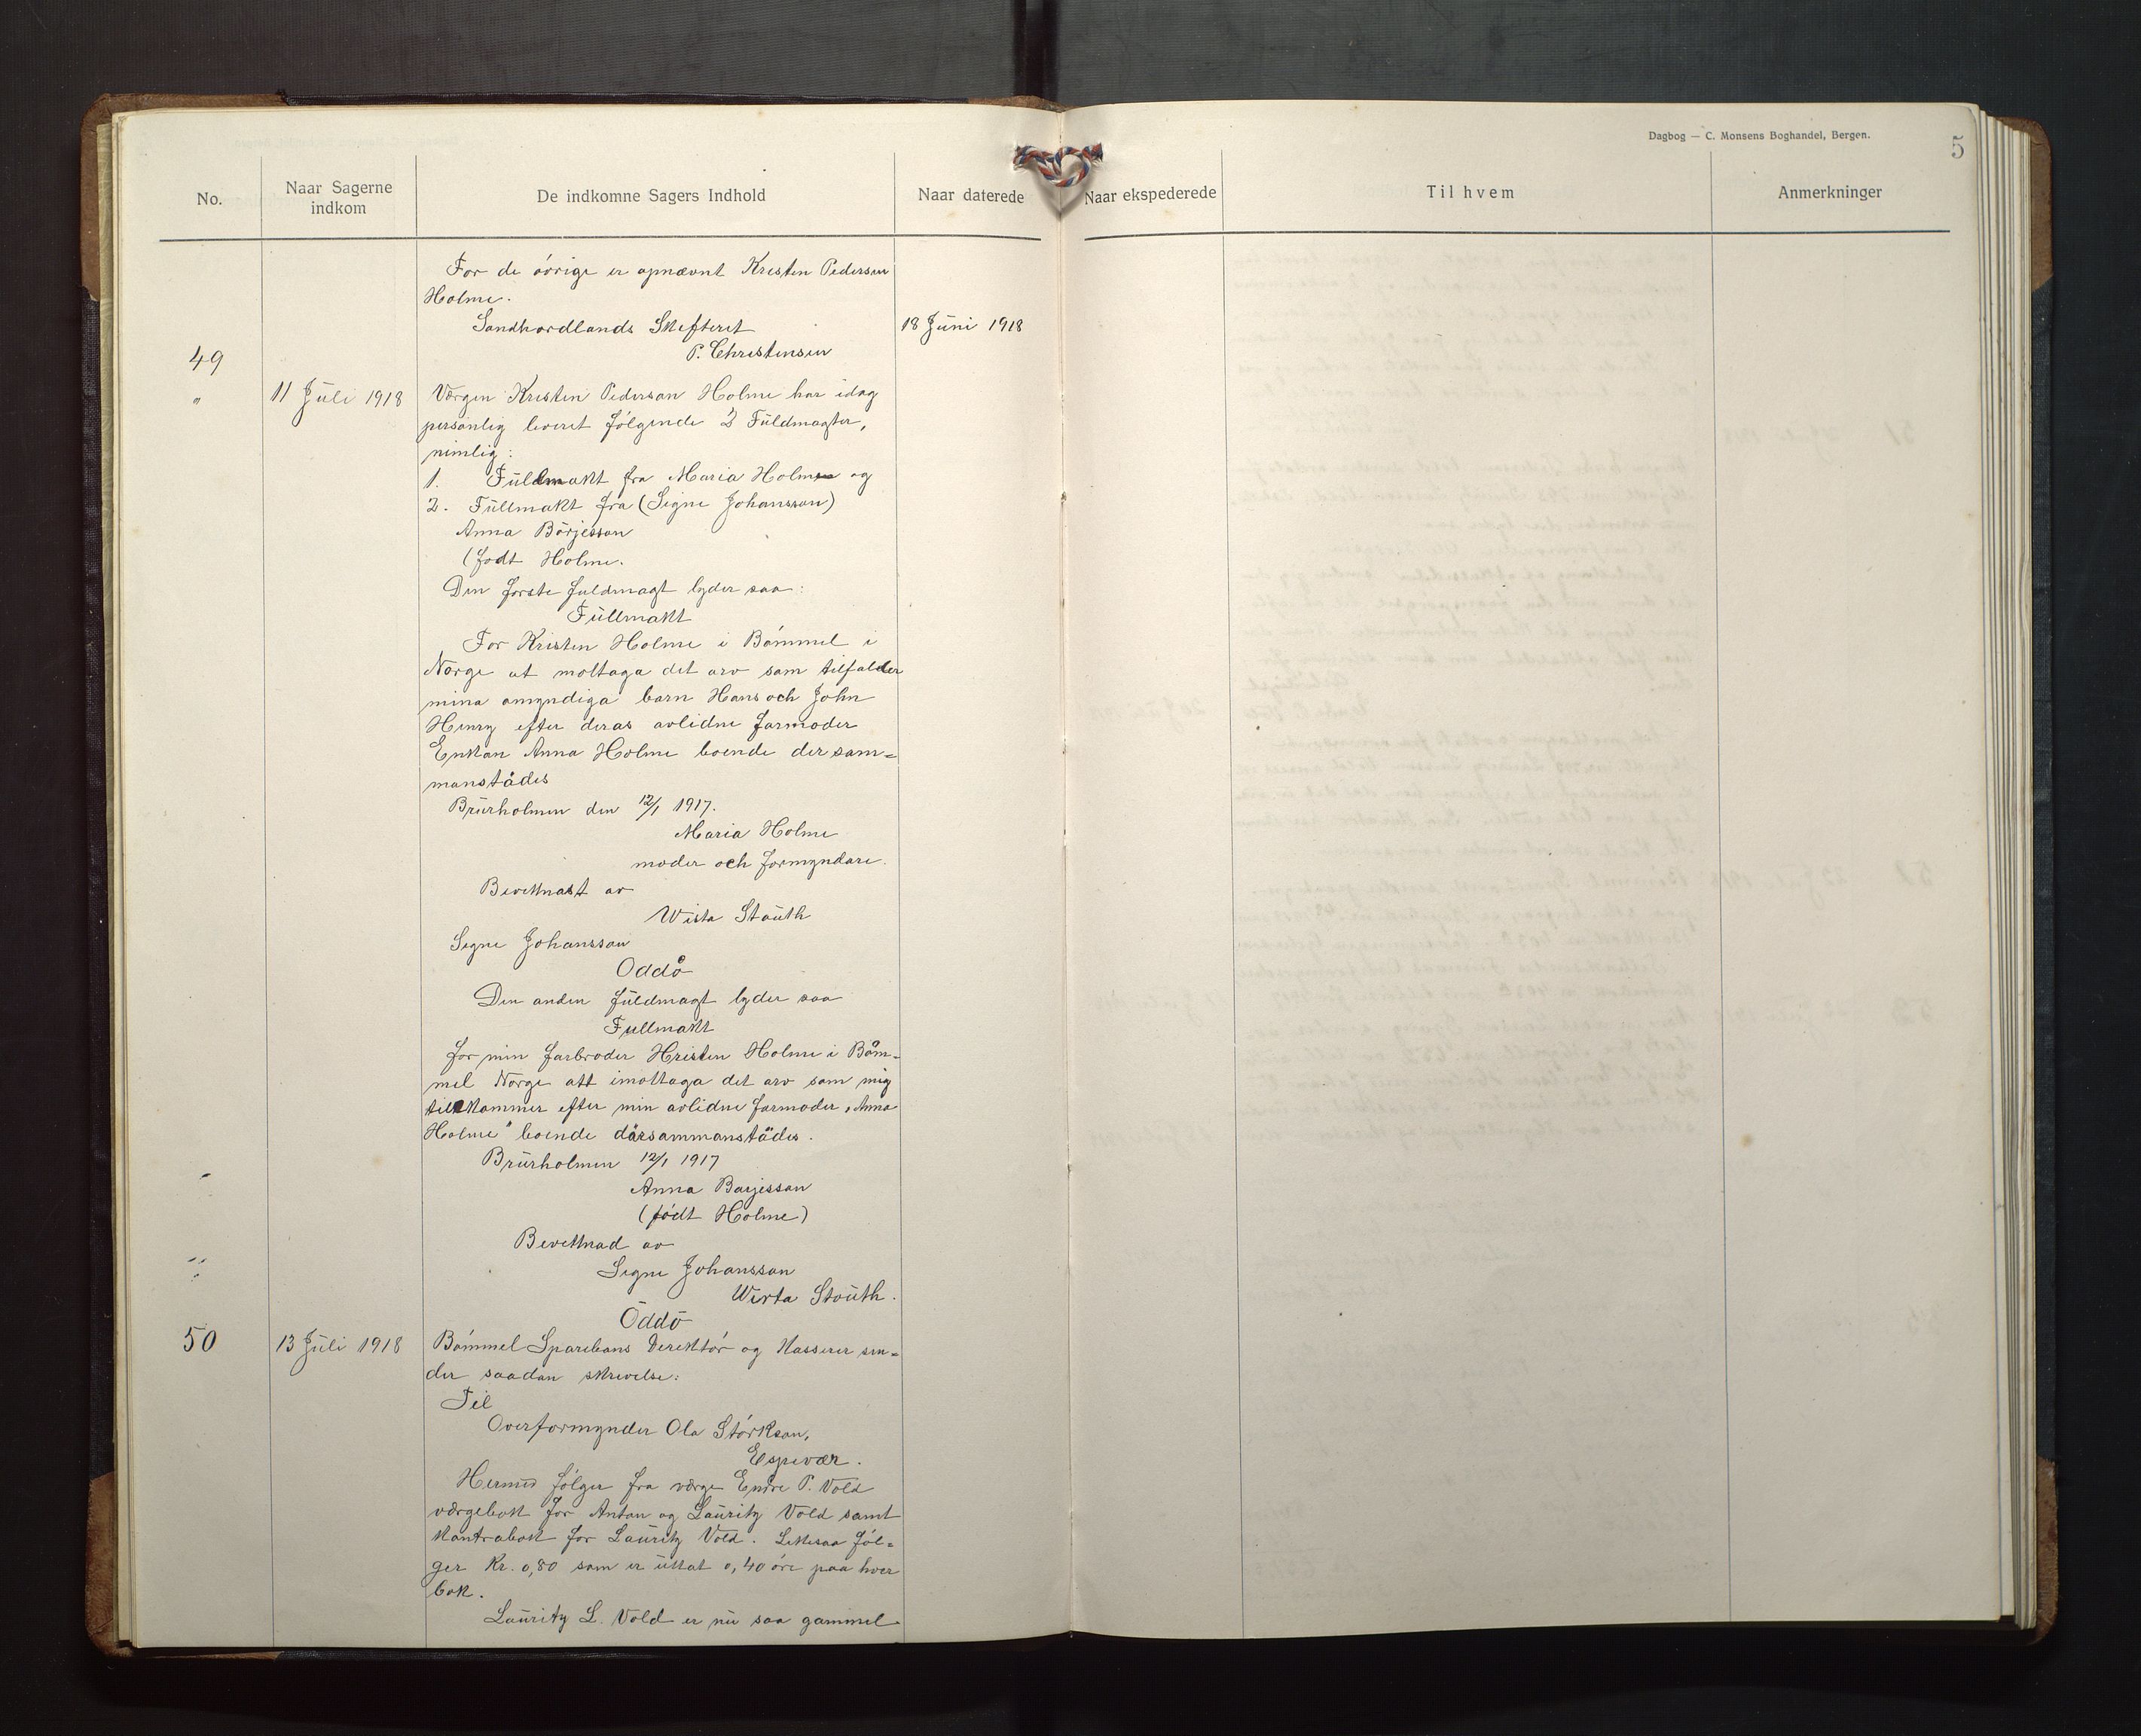 Dagbog — C. Monsens Boghandel, Bergen.
5
No.
Naar Sagerne indkom
De indkomne Sagers Indhold
Naar daterede
Naar ekspederede
Til hvem
Anmerkninger
For de óvrige er opnævnt Kristen Pedersen
Holme.
Søndhordlands Skifteret 18 Juni 1918
P. Christensen
49
" 11 Juli 1918 Værgen Kristen Pederson Holme har idag
personlig leveret fólgende 2 Fuldmagter,
nimlig:
1. Fuldmakt fra Maria Holme og
2. Fullmakt fra (Signe Johansson)
Anna Börjesson
(fodt Holme.
Den forste fuldmagt lyder saa:
Fullmakt
For Kristen Holme i Bömmel i
Norge at mottaga det arv som tilfalder
mina omyndiga barn Hans och John
Henry efter deras avlidne farmoder
Enkan Anna Holme boende der sam=
manstädes
Brurholmen den 12/1 1917.
Maria Holme
moder och formyndare.
Bevittnast av
Wista Stouth
Signe Johansson
Oddö
Den anden fuldmagt lyder saa
Fullmakt
for min farbroder Hristen Holme i Böm=
mel Norge att imottaga det arv som mig
tillkommer efter min avlidne farmoder „Anna
Holme" boende därsammanstädes.
Brurholmen 12/1 1917
Anna Barjesson
(fódt Holme)
Bevittnad av
Signe Johansson
Wirta Stouth.
Oddö
50 13 Juli 1918 Bómmel Sparebans Direktór og Kasserer sen=
der saadan skrivelse:
Til
Overformynder Ola Stórkson,
Espevær.
Hermed fólger fra værge Endre P. Vold
værgebok for Anton og Lauritz Vold samt
kontrabok for Lauritz Vold. Likesaa fól=
ger Kr. 0,80 som er uttat 0,40 óre paa hver
bok.
Lauritz L. Vold er nu saa gammel